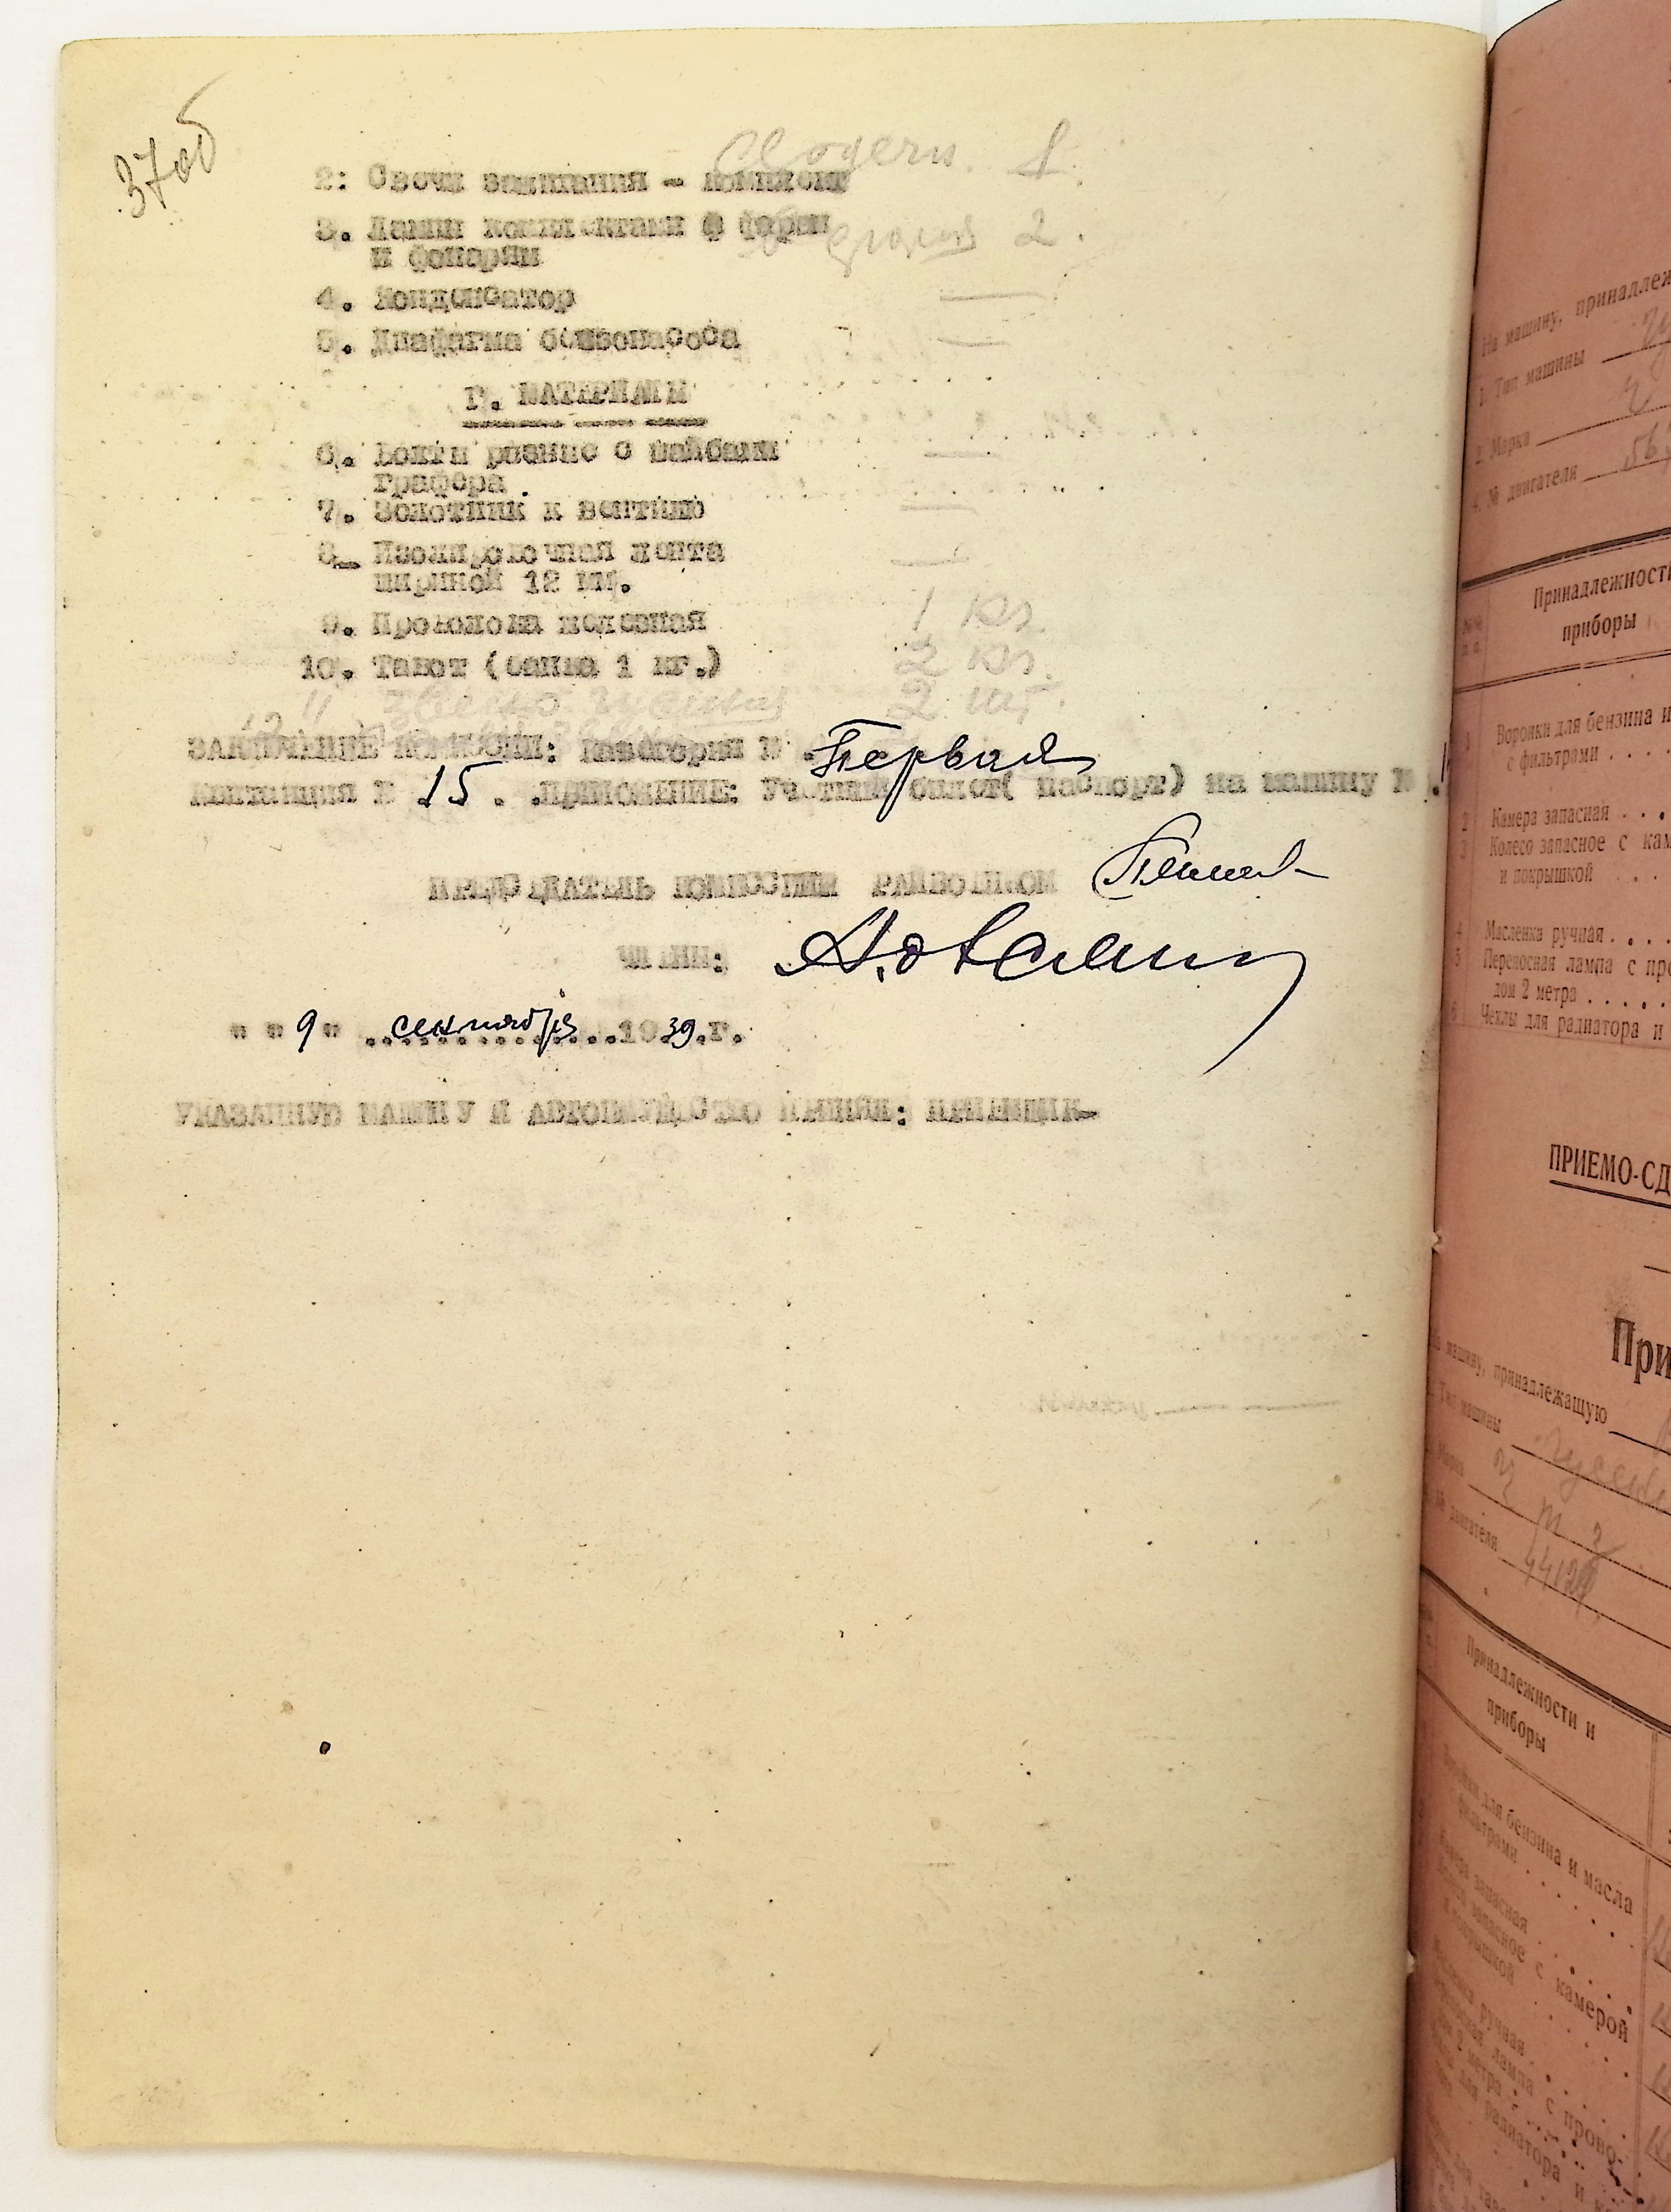 37об
2: Свечи зажигания - комплект 1.
3. Лампы комплектами в фары 2.
и фонарям
4. Конденсатор —
5. Диафагма бензонасоса —
Г. МАТЕРИАЛЫ
6. Болты разные с шайбами —
графера.
7. Золотник к вентилю —
8. Изолировочная лента —
шириной 12 мм.
9. Проволока железная 1 кг.
10. Тавот (банка 1 кг.) 2 кг.
11 звено гусениц 2 шт.
ЗАКЛЮЧЕНИЕ КОМИССИИ: Категория М Первая
Квитанция М 15. .ПРИЛОЖЕНИЕ: Учетный билет( паспорт) на машину М
ПРЕДСЕДАТЕЛЬ КОМИССИИ РАЙВОЕНКОМ
ЧЛЕНЫ:
" " 9 " сентября 1939.г.
УКАЗАННУЮ МАШИНУ И АВТОИМУЩЕСТВО ПРИНЯЛ: ПРИЕМЩИК-
На машину, принадлеж
1. Тип машины
2. Марка
4. № двигателя
Принадлежности
приборы
1 Воронки для бензина и
с фильтрами . . .
2 Камера запасная . . .
3 Колесо запасное с кам
и покрышкой . . .
4 Масленка ручная . . . .
5 Переносная лампа с про
дом 2 метра . . . . .
6 Чехлы для радиатора и
ПРИЕМО-СД
При
На машину, принадлежащую
Тип машины
Марка
№ двигателя 44124
Принадлежности и
приборы
Воронки для бензина и масла
с фильтрами . . . .
Камера запасная . . . .
Колесо запасное с камерой
и покрышкой . . . .
Масленка ручная . . . .
лампа с прово-
дом 2 метра . . . .
для радиатора и